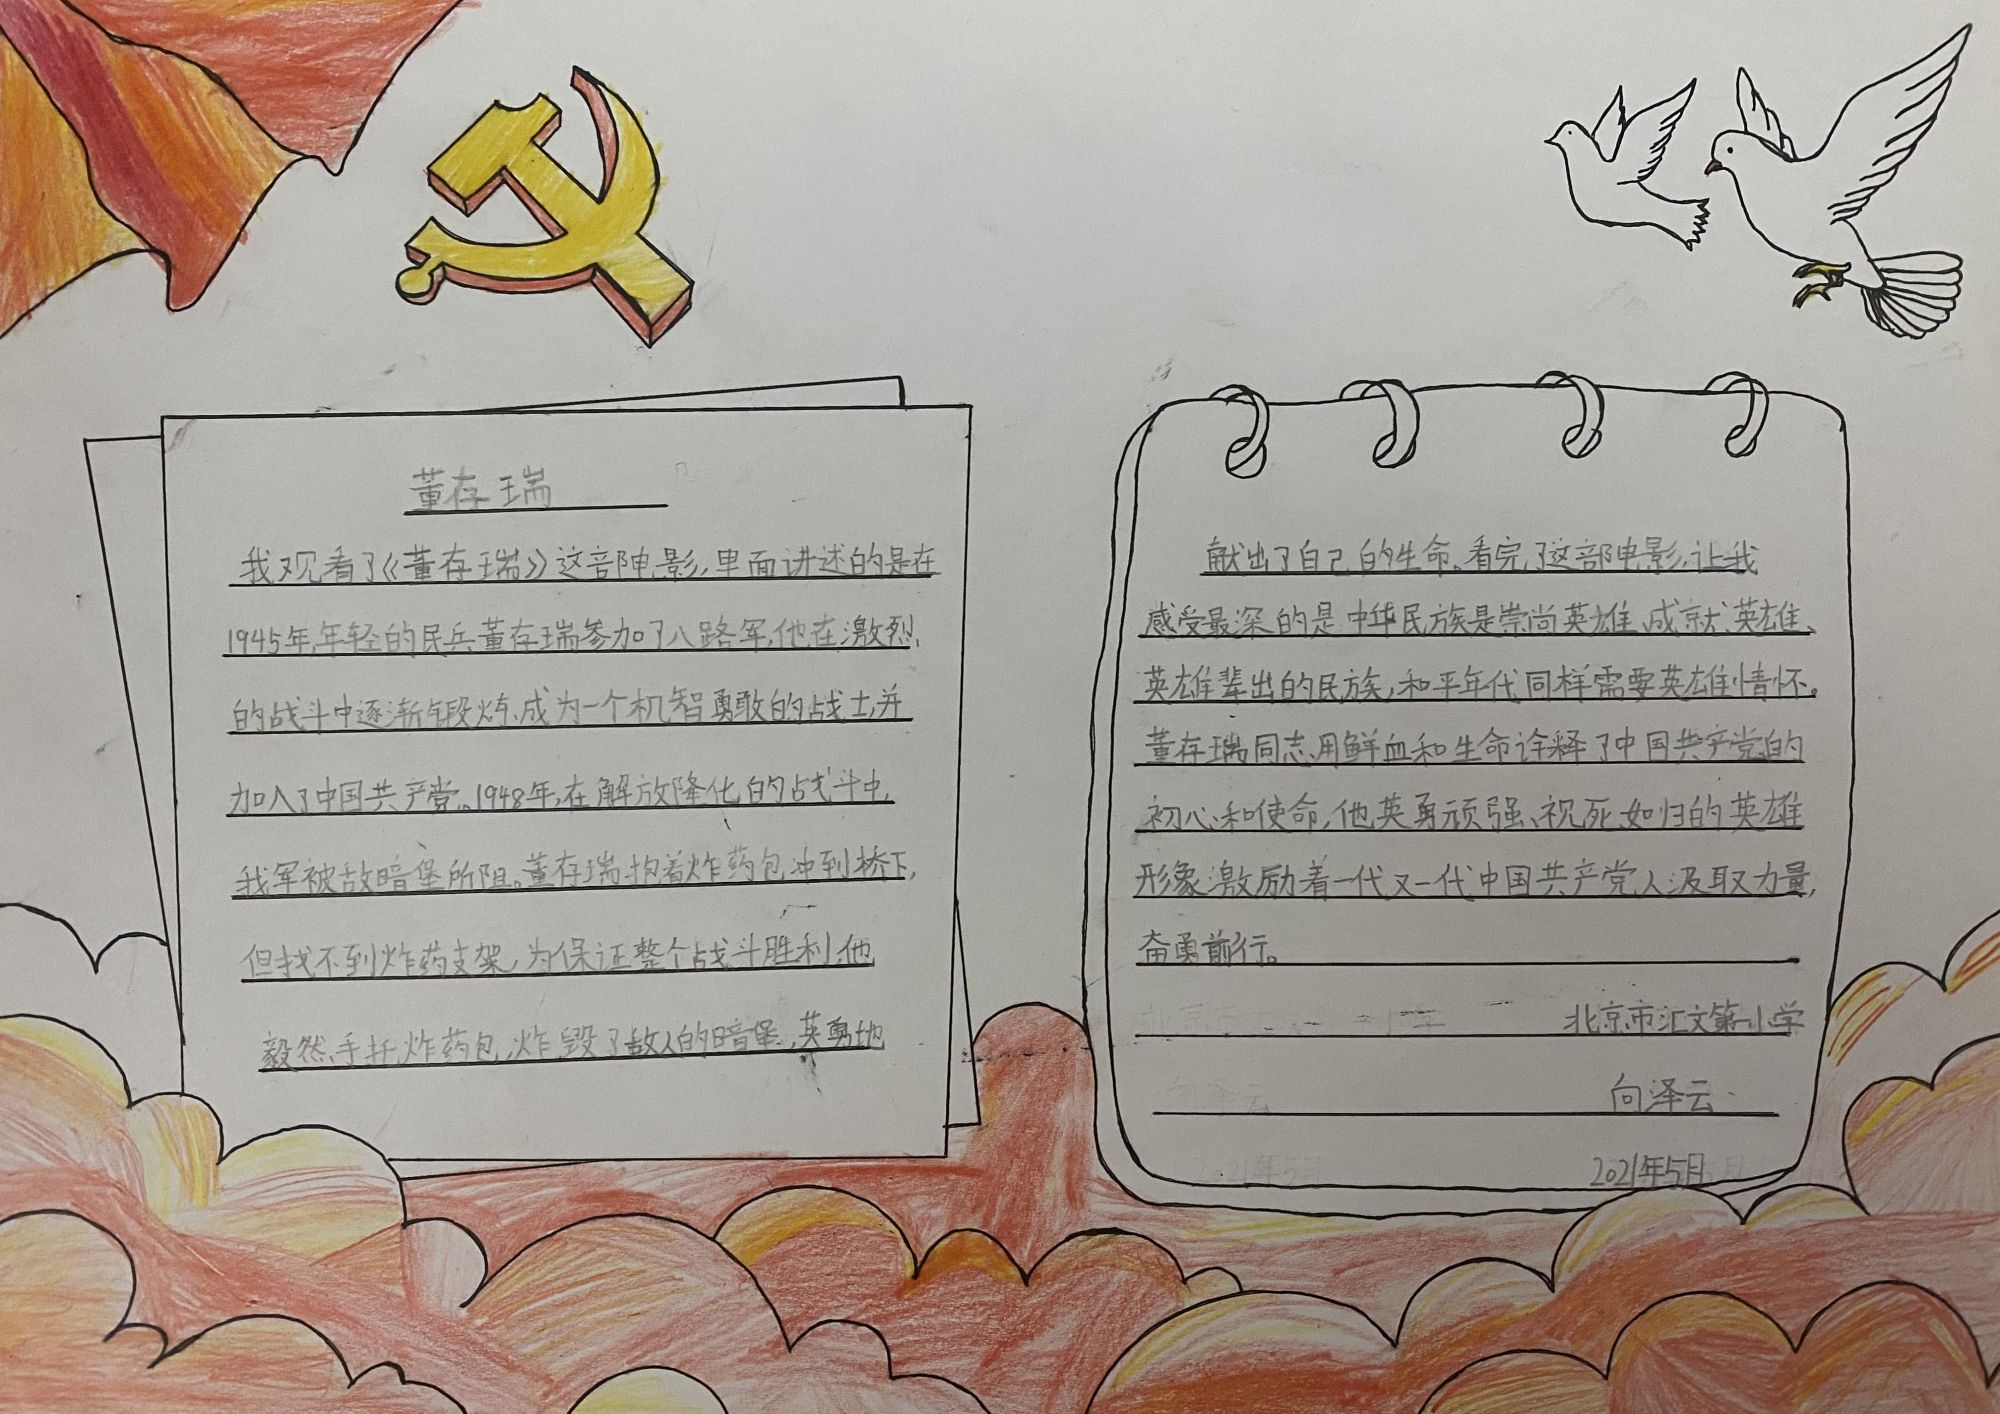 董存瑞
我观看了《董存瑞》这部电影,里面讲述的是在
1945年,年轻的民兵董存瑞参加了八路军,他在激烈
的战斗中逐渐锻炼成为一个机智勇敢的战士,并
加入了中国共产党。1948年,在解放隆化的战斗中,
我军被敌暗堡所阻。董存瑞抱着炸药包冲到桥下,
但找不到炸药支架,为保证整个战斗胜利,他
毅然手托炸药包,炸毁了敌人的暗堡,英勇地
献出了自己的生命。看完了这部电影,让我
感受最深的是中华民族是崇尚英雄、成就英雄、
英雄辈出的民族,和平年代同样需要英雄情怀。
董存瑞同志用鲜血和生命诠释了中国共产党的
初心和使命,他英勇顽强、视死如归的英雄
形象激励着一代又一代中国共产党人汲取力量,
奋勇前行。
北京市汇文第一小学
向泽云
2021年5月